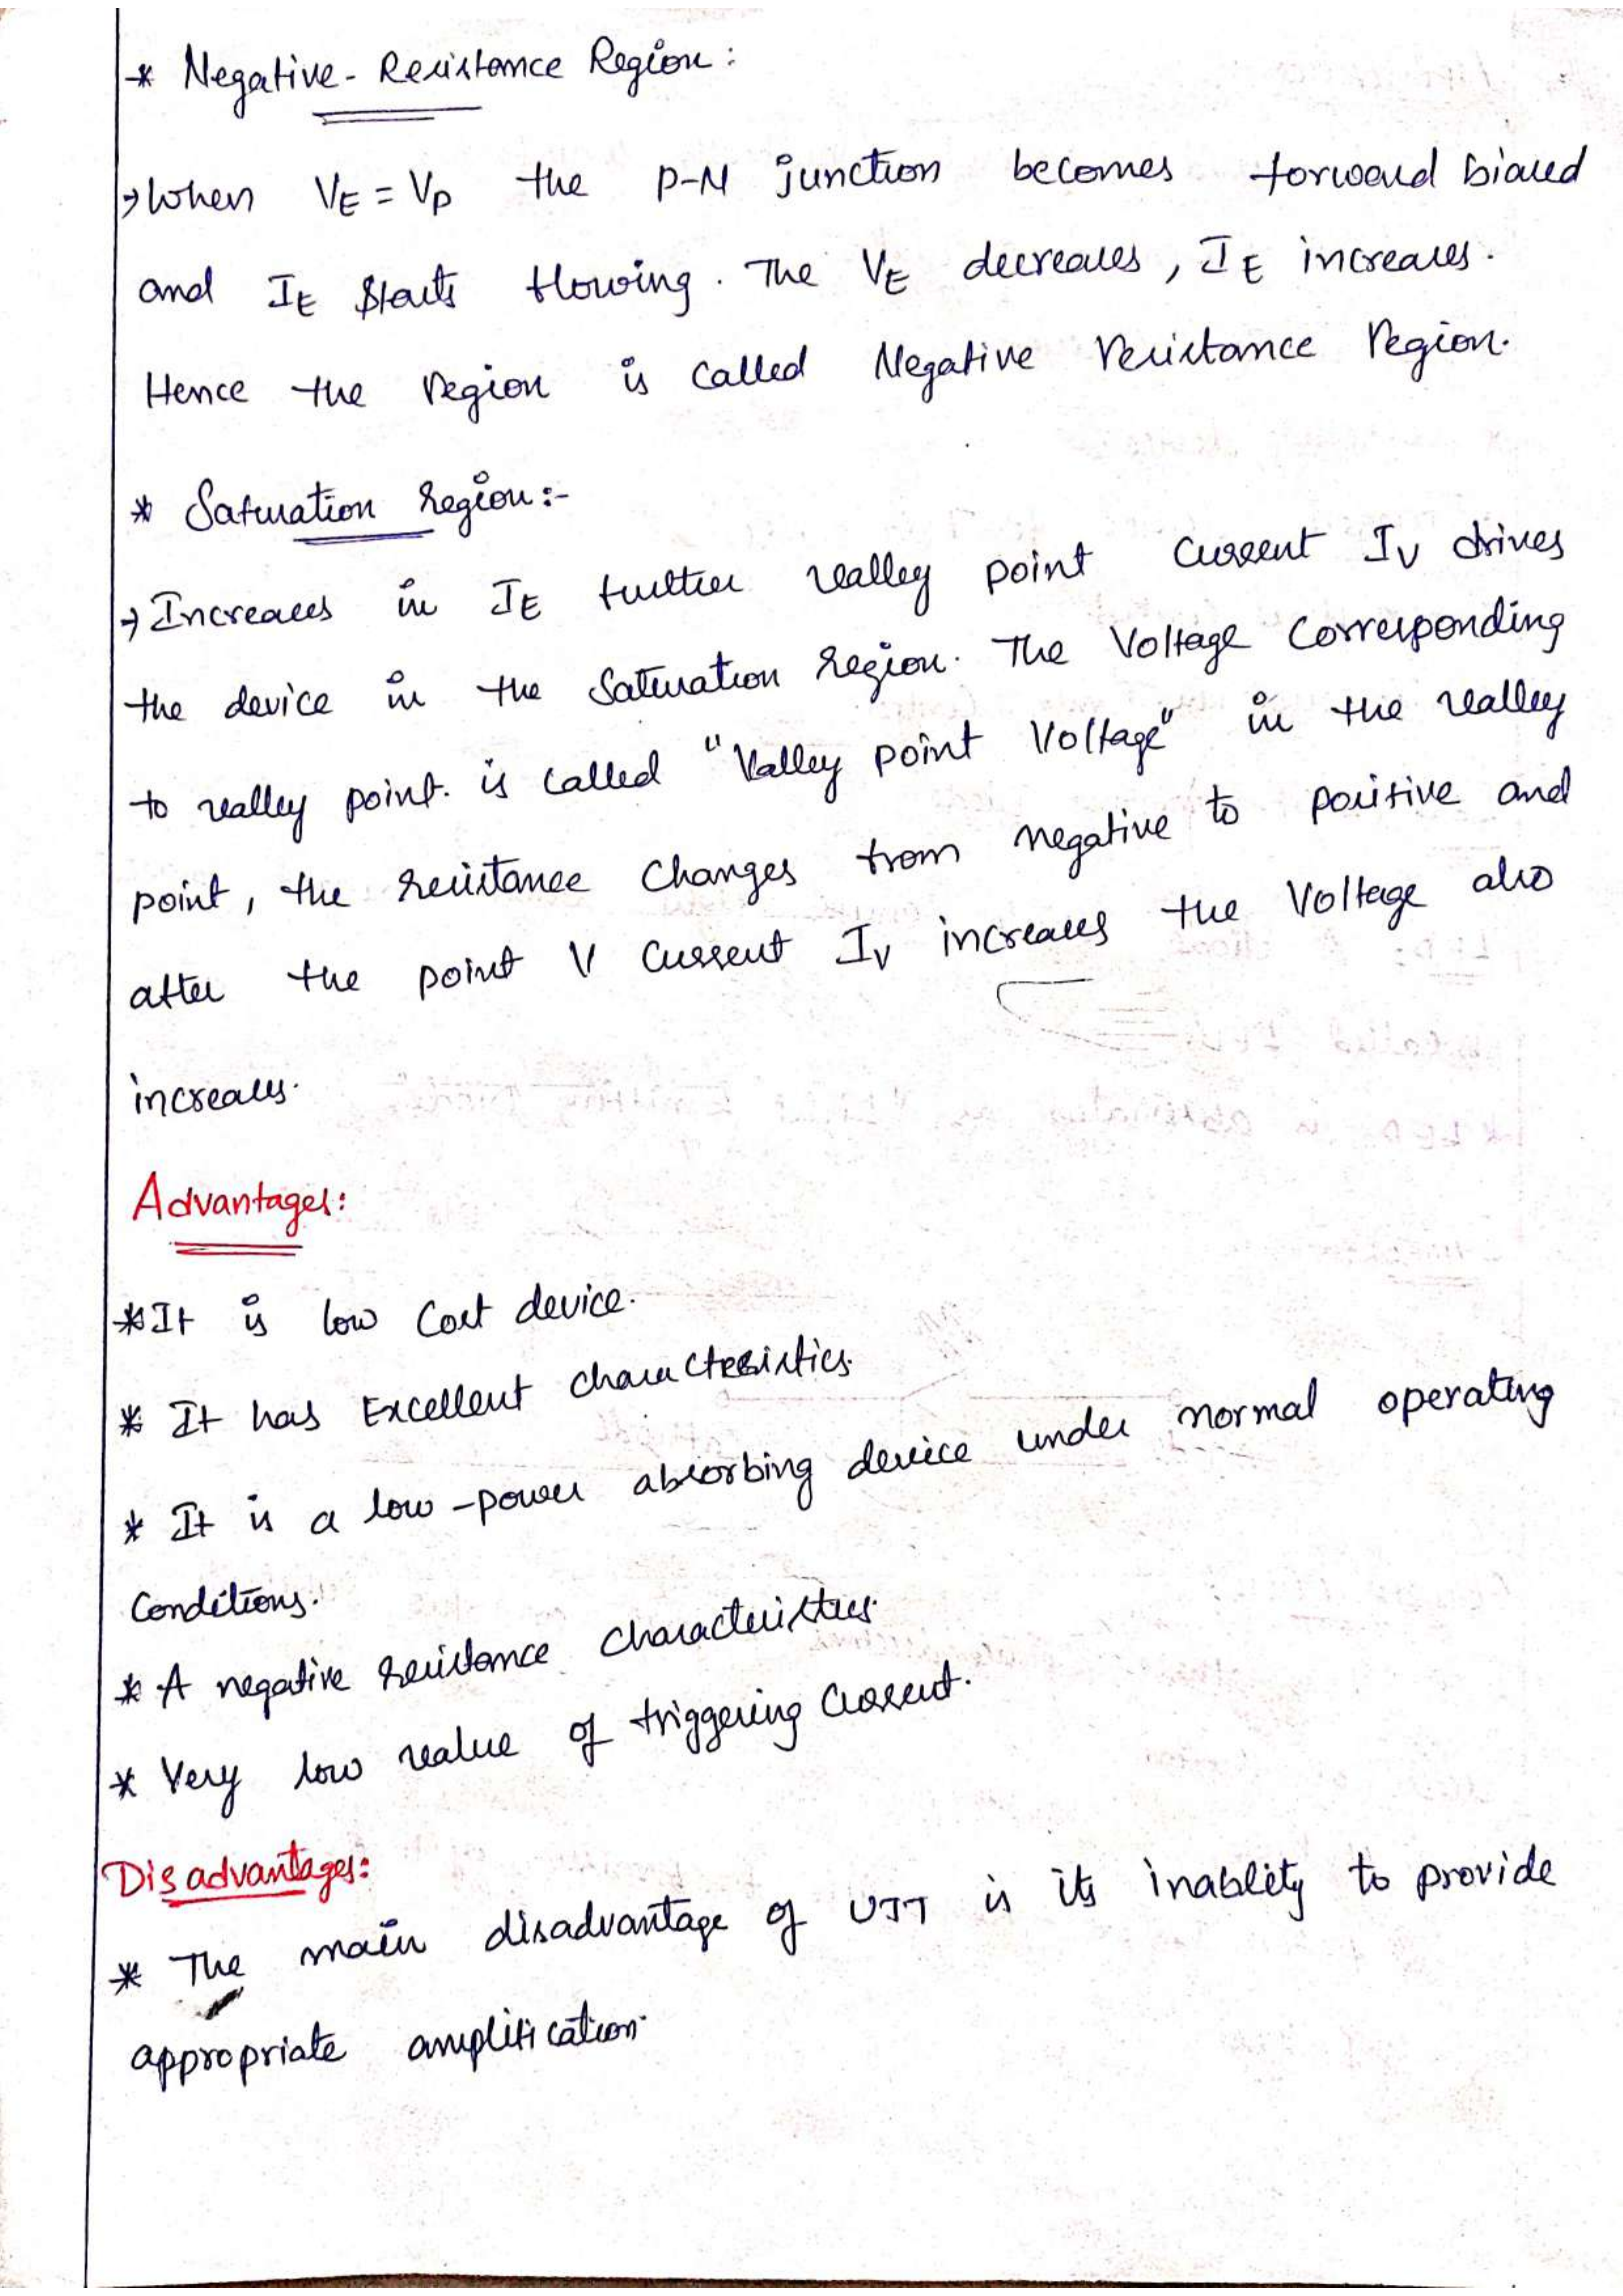 * Negative-Resistance Region:
→ When VE = VP the P-N junction becomes forward biased
and IE starts flowing. The VE decreases, IE increases.
Hence the region is called Negative resistance region.
* Saturation region:-
→ Increases in IE further valley point current IV drives
the device in the saturation region. The Voltage corresponding
to valley point. is called "Valley point Voltage" in the valley
point, the resistance changes from negative to positive and
after the point V current IV increases the Voltage also
increases.
Advantages:
* It is low cost device.
* It has Excellent characteristics.
* It is a low-power absorbing device under normal operating
conditions.
* A negative resistance characteristics.
* Very low value of triggering current.
Disadvantages:
* The main disadvantage of UJT is its inablity to provide
appropriate amplification.